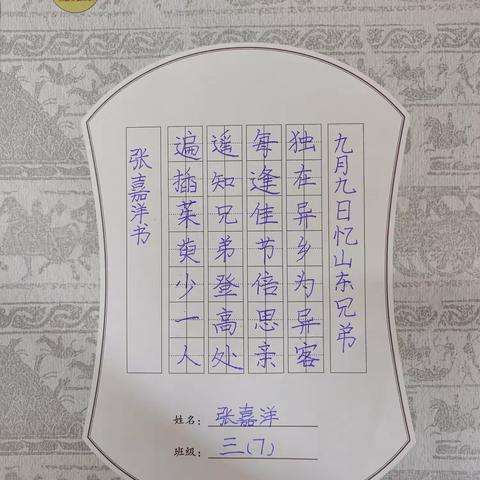 九月九日忆山东兄弟
独在异乡为异客
每逢佳节倍思亲
遥知兄弟登高处
遍插茱萸少一人
张嘉洋书
姓名：张嘉洋
班级：三(7)